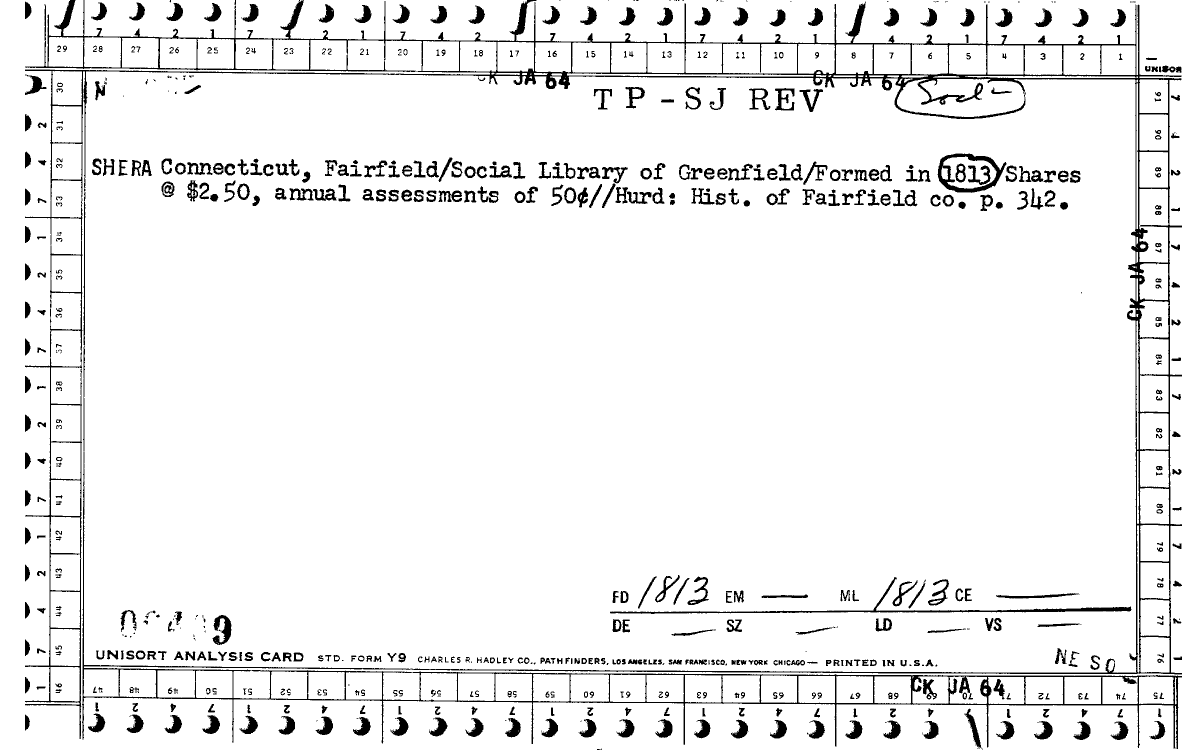 7 4 2 1 7 4 2 1 7 4 2 1 7 4 2 1 7 4 2 1 7 4 2 1 7 4 2 1
29 28 27 26 25 24 23 22 21 20 19 18 17 16 15 14 13 12 11 10 9 8 7 6 5 4 3 2 1
UNISOR
CK JA 64 CK JA 64
TP-SJ REV
SHERA Connecticut, Fairfield/Social Library of Greenfield/Formed in 1813/Shares
@ $2.50, annual assessments of 50¢//Hurd: Hist. of Fairfield co. p. 342.
CK JA 64
30 31 32 33 34 35 36 37 38 39 40 41 42 43 44 45 46
91 90 89 88 87 86 85 84 83 82 81 80 79 78 77 76
FD 1813 EM — ML 1813 CE —
DE — SZ — LD — VS —
UNISORT ANALYSIS CARD STD. FORM Y9 CHARLES R. HADLEY CO., PATHFINDERS, LOS ANGELES, SAN FRANCISCO, NEW YORK CHICAGO— PRINTED IN U.S.A.
NE SO
CK JA 64
47 48 49 50 51 52 53 54 55 56 57 58 59 60 61 62 63 64 65 66 67 68 69 70 71 72 73 74 75
1 2 4 7 1 2 4 7 1 2 4 7 1 2 4 7 1 2 4 7 1 2 4 7 1 2 4 7 1